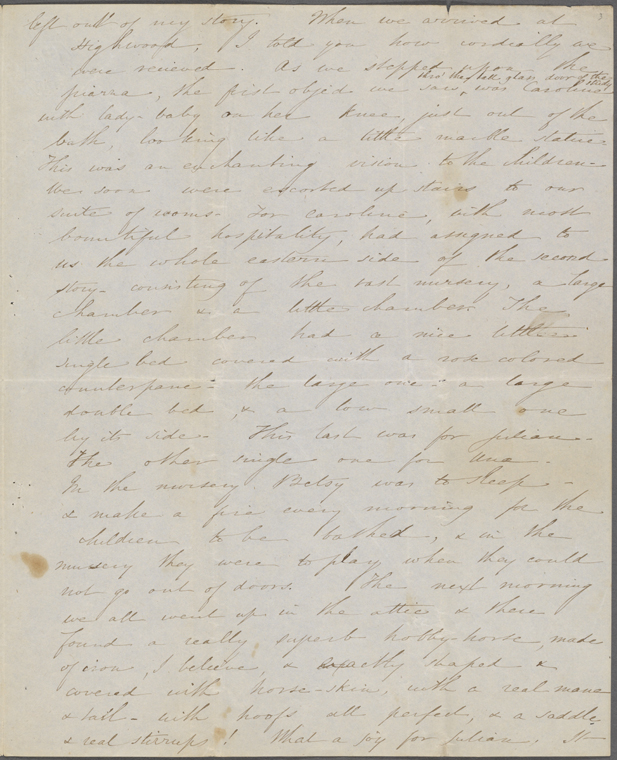 left out of my story. When we arrived at
Highwood, I told you how cordially we
were recieved. As we stepped upon the
thro' the tall glass door of the
piazza, the first object we saw, was Caroline
with lady-baby on her knee, just out of the
bath, looking like a little marble statue.
This was an enchanting vision to the children.
We soon were escorted up stairs to our
suite of rooms. For Caroline, with most
bountiful hospitality, had assigned to
us the whole eastern side of the second
story - consisting of the vast nursery, a large
chamber & a little chamber. The
little chamber had a nice little
single bed covered with a rose colored
counterpane - the large one - a large
double bed, & a low small one
by its side. This last was for Julian -
The other single one for Una -
In the nursery Betsy was to sleep -
& make a fire every morning for the
children to be bathed, & in the
nursery they were to play when they could
not go out of doors. The next morning
we all went up in the attic & there
found a really superb hobby-horse, made
of iron, I believe, & exactly shaped &
covered with horse-skin, with a real mane
& tail - with hoofs all perfect, & a saddle,
& real stirrups! What a joy for Julian. It